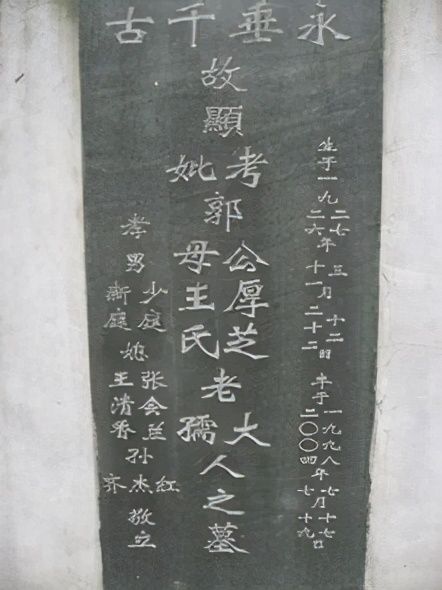 永垂千古
生于一九二七二六年三十一月十二二十二日 卒于一九九八二〇〇四年七七月十七十九日
故顯考妣郭公厚芝母王氏老大孺人之墓
孝男少庭新庭媳张会兰王清香孙红杰齐敬立